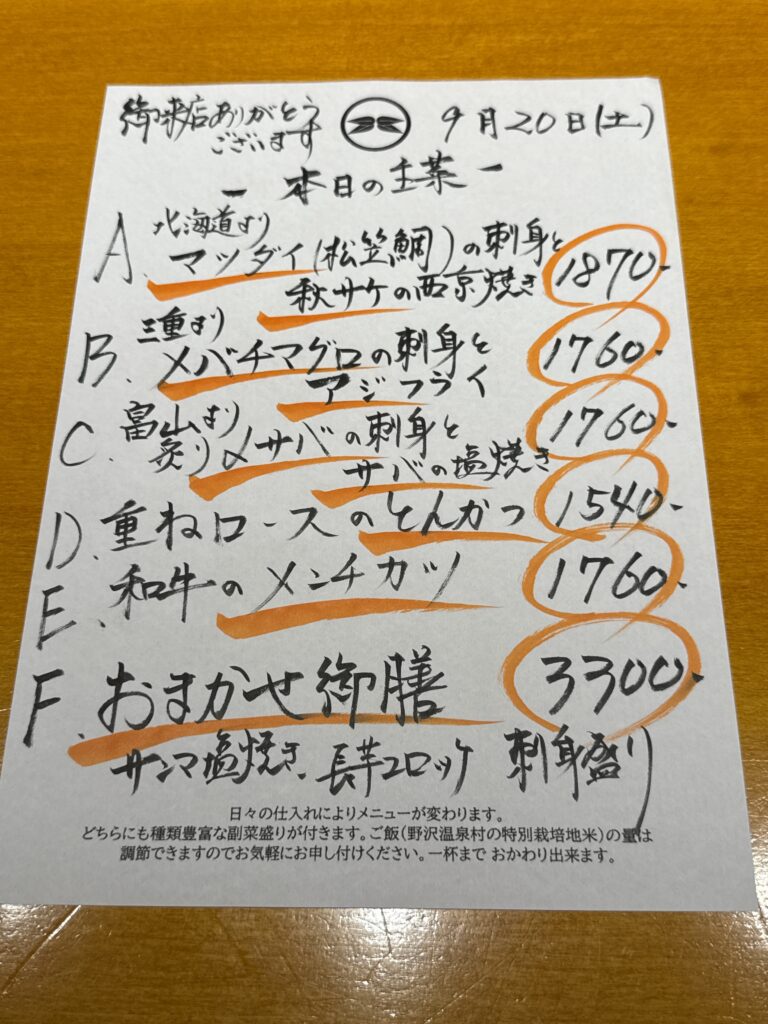 御来店ありがとう
ございます
9月20日(土)
- 本日の主菜 -
A. 北海道より
マツダイ(松笠鯛)の刺身と
秋サケの西京焼き 1870-
B. 三重より
メバチマグロの刺身と
アジフライ 1760-
C. 富山より
炙り〆サバの刺身と
サバの塩焼き 1760-
D. 重ねロースのとんかつ 1540-
E. 和牛のメンチカツ 1760-
F. おまかせ御膳 3300-
サンマ塩焼き、長芋コロッケ 刺身盛り
日々の仕入れによりメニューが変わります。
どちらにも種類豊富な副菜盛りが付きます。ご飯(野沢温泉村の特別栽培地米)の量は
調節できますのでお気軽にお申し付けください。一杯まで おかわり出来ます。